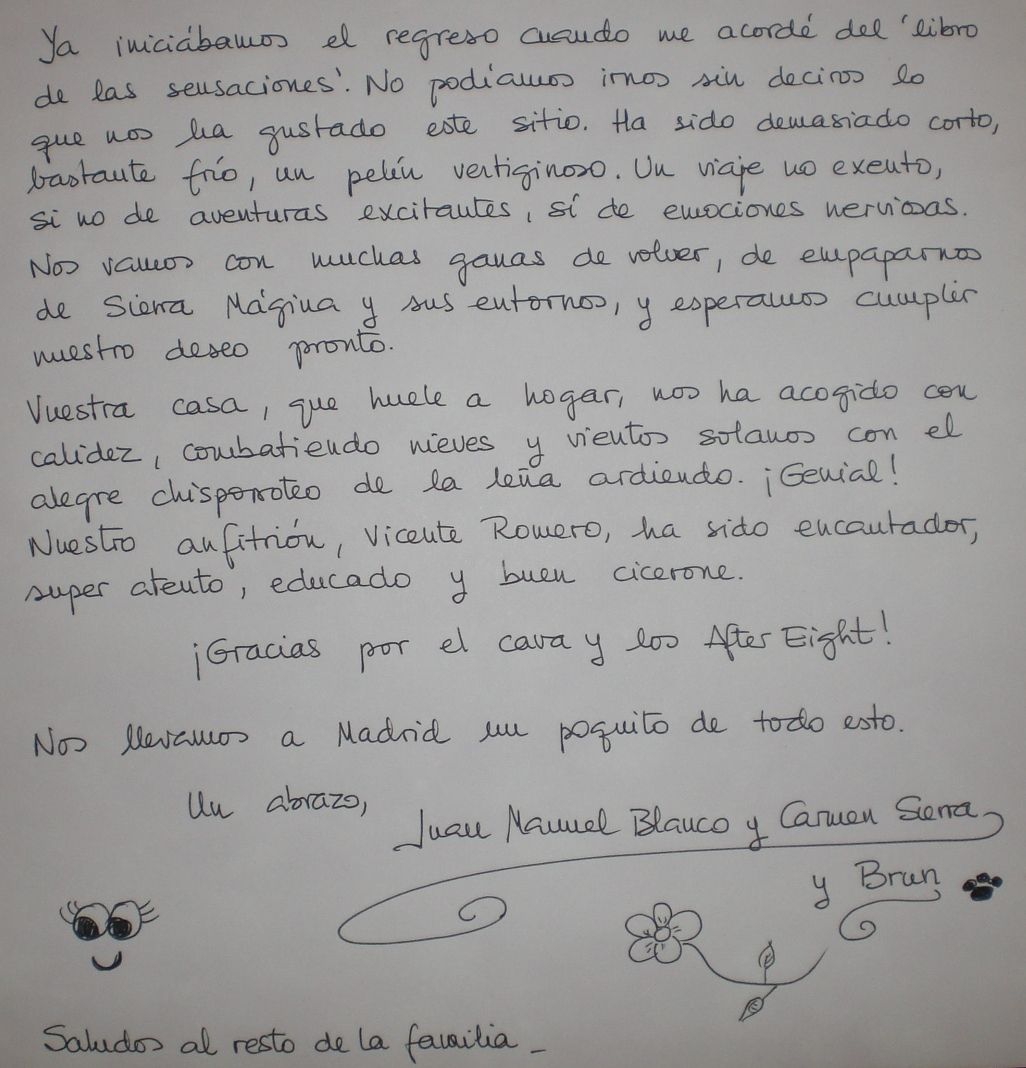 Ya iniciábamos el regreso cuando me acordé del 'libro
de las sensaciones'. No podíamos irnos sin deciros lo
que nos ha gustado este sitio. Ha sido demasiado corto,
bastante frío, un pelín vertiginoso. Un viaje no exento,
si no de aventuras excitantes, sí de emociones nerviosas.
Nos vamos con muchas ganas de volver, de empaparnos
de Sierra Mágina y sus entornos, y esperamos cumplir
nuestro deseo pronto.
Vuestra casa, que huele a hogar, nos ha acogido con
calidez, combatiendo nieves y vientos solanos con el
alegre chisporroteo de la leña ardiendo. ¡Genial!
Nuestro anfitrión, Vicente Romero, ha sido encantador,
super atento, educado y buen cicerone.
¡Gracias por el cava y los After Eight!
Nos llevamos a Madrid un poquito de todo esto.
Un abrazo,
Juan Manuel Blanco y Carmen Sierra
y Brun
Saludos al resto de la familia _